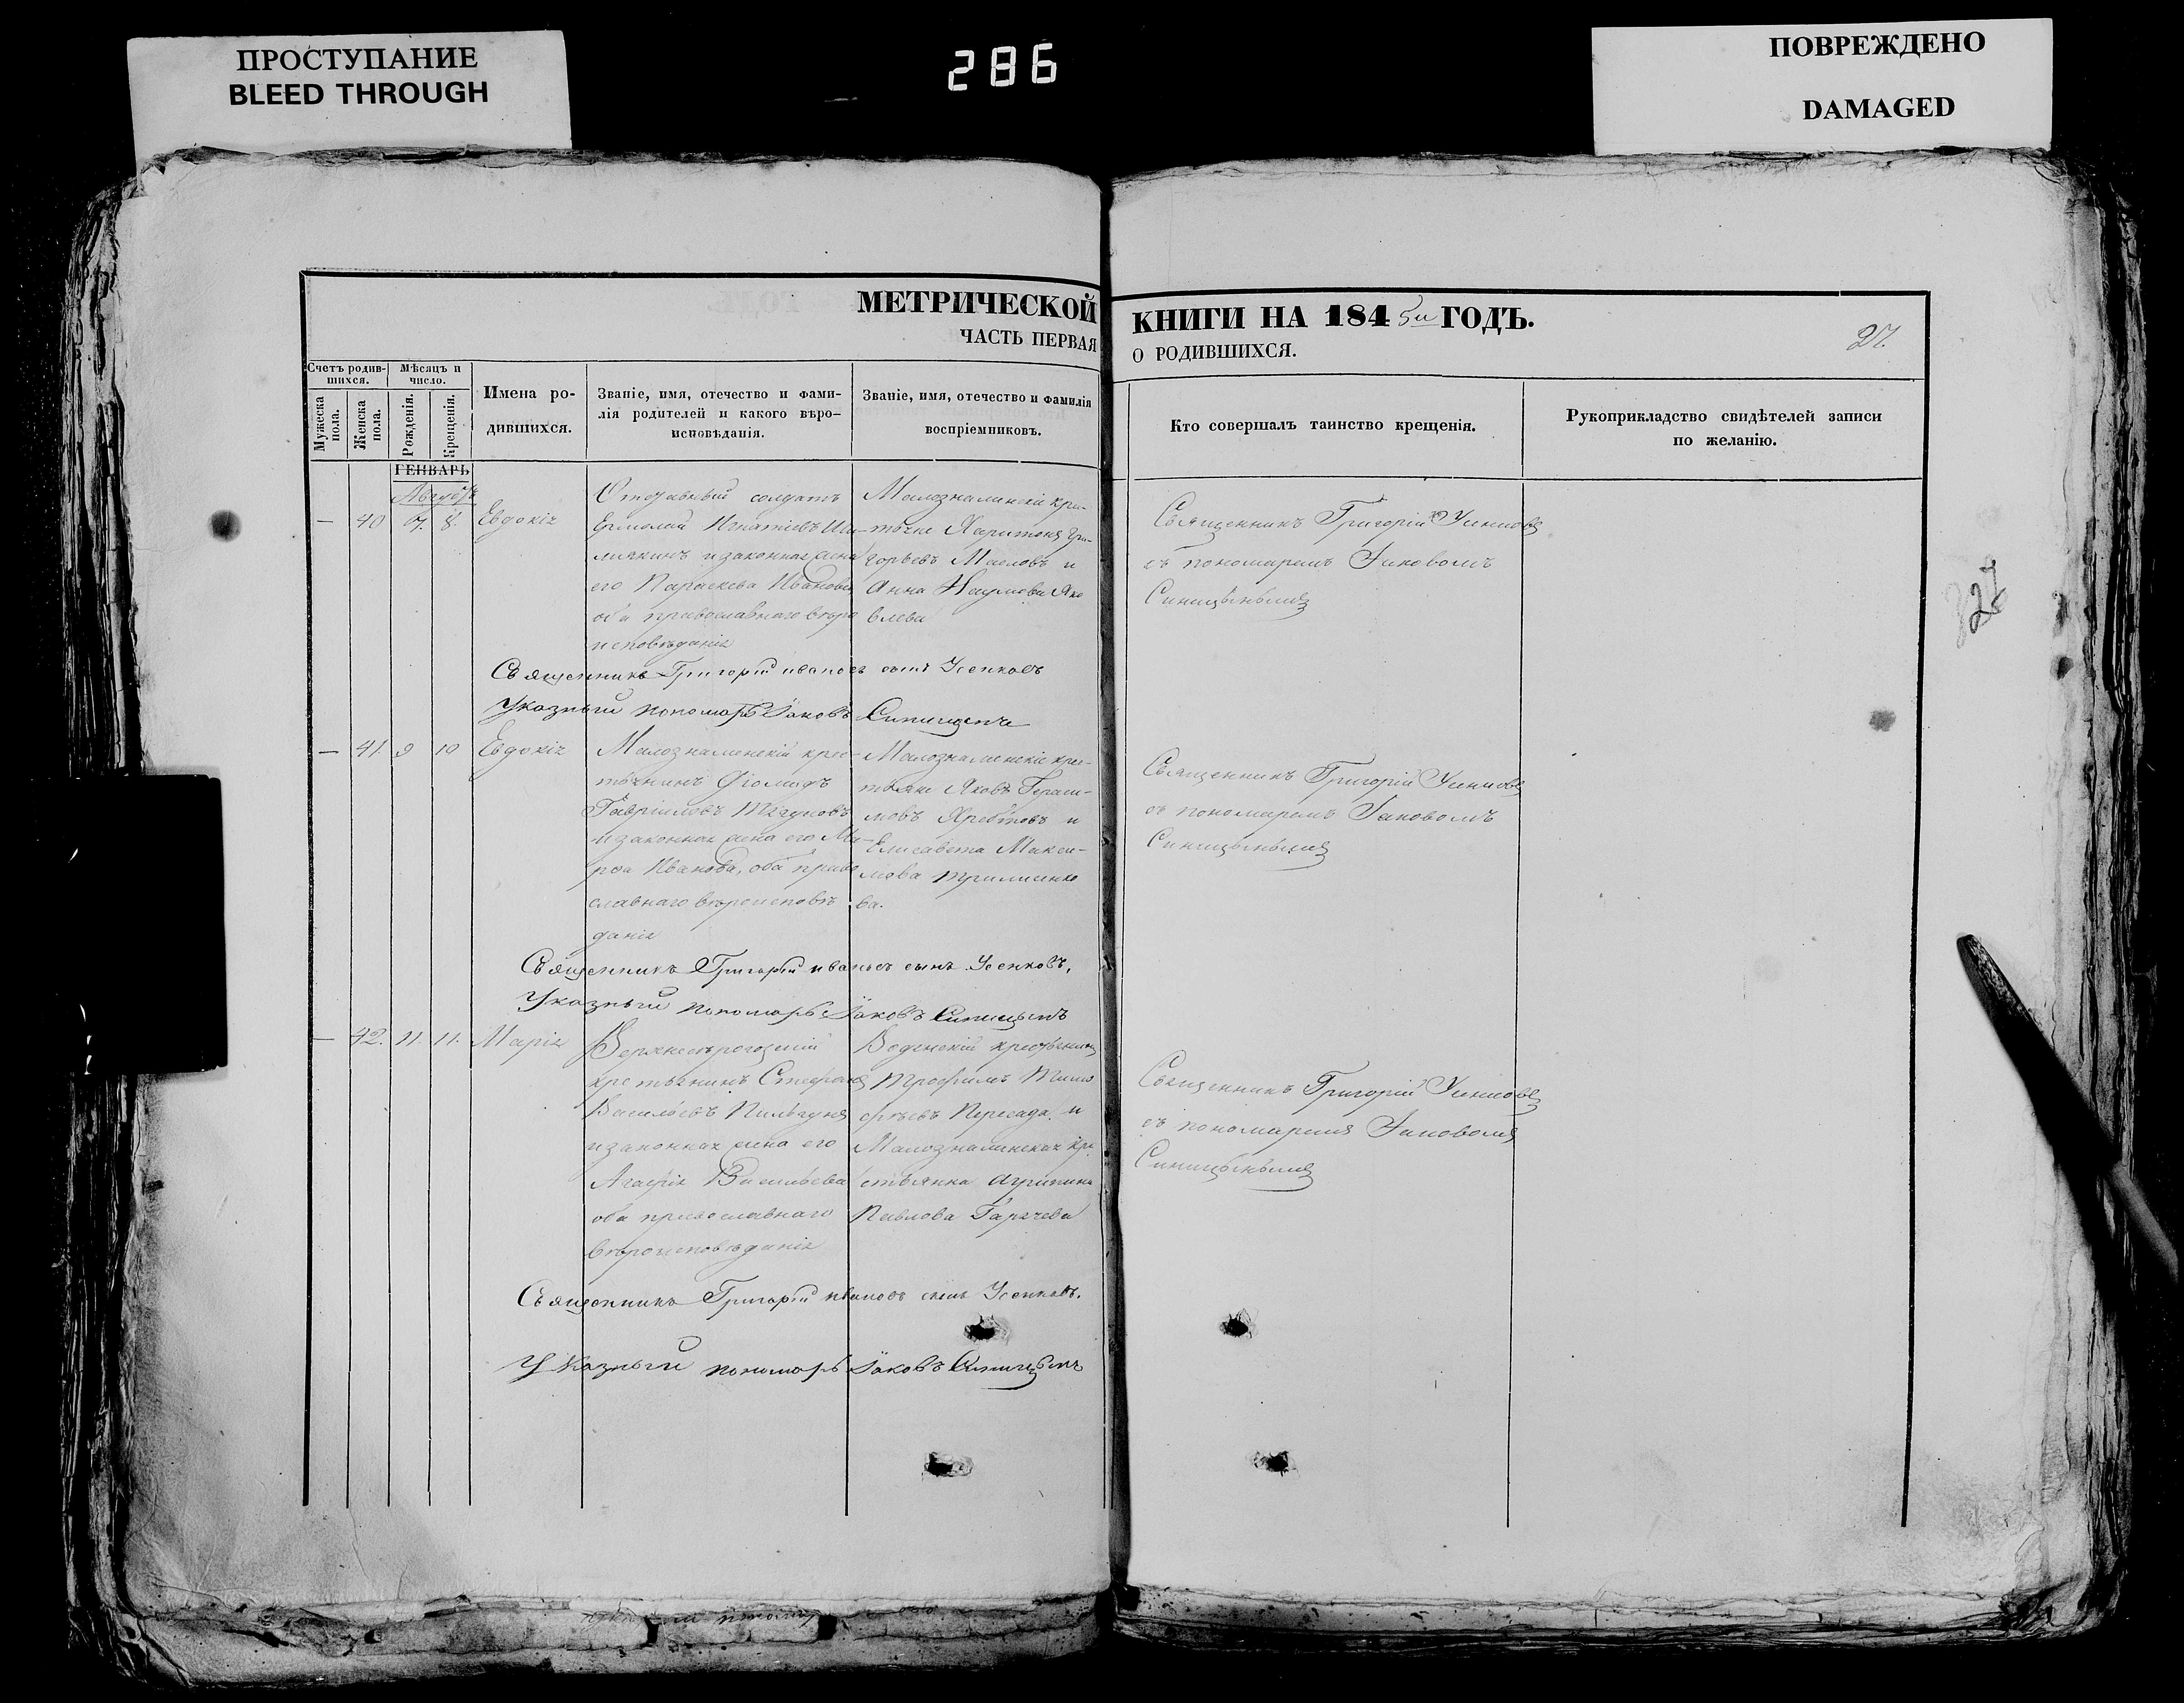 ПРОСТУПАНИЕ
BLEED THROUGH
286
ПОВРЕЖДЕНО
DAMAGED
МЕТРИЧЕСКОЙ КНИГИ НА 1845й ГОДЪ.
ЧАСТЬ ПЕРВАЯ О РОДИВШИХСЯ.
27.
Счетъ родив-
шихся.
Мѣсяцъ и
число.
Мужеска
пола.
Женска
пола.
Рожденія.
Крещенія.
Имена ро-
дившихся.
Званіе, имя, отечество и фами-
лія родителей и какого вѣро-
исповѣданія.
Званіе, имя, отечество и фамилія
воспріемниковъ.
Кто совершалъ таинство крещенія.
Рукоприкладство свидѣтелей записи
по желанію.
ГЕНВАРЬ
Августъ
— 40 7. 8. Евдокія
Отставный солдатъ
Ермолай Игнатіевъ
и законная жена
его Параскева Иванова
оба православнаго вѣро
исповѣданія
Харитонъ Гри-
горьевъ Масловъ и
Анна Наумова Яко
влева
Священникъ Григорій
съ пономаремъ Іаковомъ
Синицынымъ
27
Священникъ Григорій Ивановъ сынъ Усенковъ
Указный пономарь Іаковъ Синицынъ
— 41. 9 10 Евдокія
Малознаменскій крес-
тьянинъ Діомидъ
Гавріиловъ
и законная жена его Ма-
рѳа Иванова, оба право
славнаго вѣроисповѣ
данія
Малознаменскіе крес-
тьяне Яковъ Гераси-
мовъ и
Елисавета Макси-
мова
ва.
Священникъ Григорій
съ пономаремъ Іаковомъ
Синицынымъ
Священникъ Григорій Ивановъ сынъ Усенковъ,
Указный пономарь Іаковъ Синицынъ
— 42. 11 11. Марія
крестьянинъ Стефанъ
Васильевъ
и законная жена его
Агафія Васильева
оба православнаго
вѣроисповѣданія
крестьянинъ
Трофимъ Тимо
фѣевъ Пересада и
Малознаменская кре
стьянка Агрипина
Павлова Гарячева
Священникъ Григорій
съ пономаремъ Іаковомъ
Синицынымъ
Священникъ Григорій Ивановъ сынъ Усенковъ.
Указный пономарь Іаковъ Синицынъ